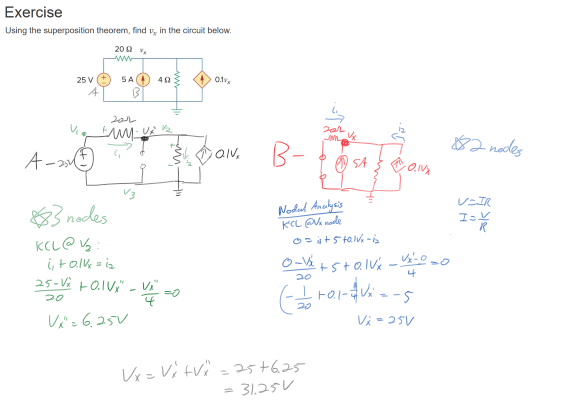 Exercise
Using the superposition theorem, find vₓ in the circuit below.
20 Ω vₓ
25 V 5 A 4 Ω 0.1vₓ
A B
20Ω
V₁ + - Vx V₂
A - 25V i₁ i₂ 0.1Vx
V₃
3 nodes
KCL @ V₂ :
i₁ + 0.1Vx = i₂
(25-Vx")/20 + 0.1Vx" - Vx"/4 = 0
Vx" = 6.25V
i₁
20Ω Vx i₂
B - 5A 0.1Vx
2 nodes
V=IR
I=V/R
Nodal Analysis
KCL @Vx node
0 = i₁+5+0.1Vx-i₂
(0-Vx')/20 + 5 + 0.1Vx' - (Vx'-0)/4 = 0
(-1/20 + 0.1 - 1/4)Vx' = -5
Vx' = 25V
Vx = Vx' + Vx" = 25+6.25
= 31.25V